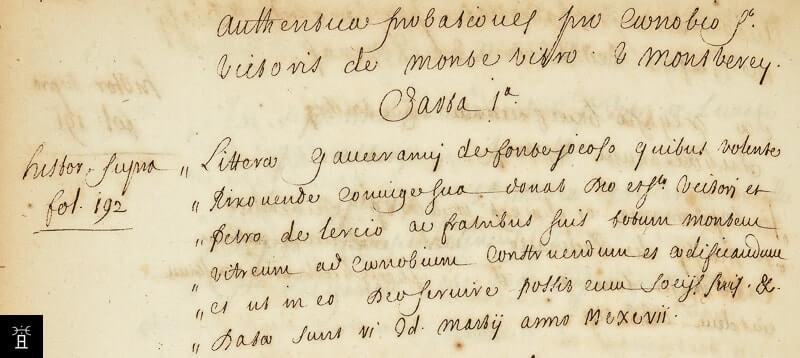 Authentica probationes pro Cœnobio Sti.
Victoris de monte vitro. v Montverey.
Caxa 1a.
histor. supra
fol. 192
„ Littera Gauceranij de fonte jocoso quibus volente
„ Rixovende conuige sua donat Deo et Sto Victori et
„ Petro de Lercio ac fratribus suis totum montem
„ vitreum ad Cœnobium construendum et ædificandum
„ et ut in eo Deo servire possit cum Socijs suis. &.
„ Data sunt vi Id. martij anno MCXCVII.